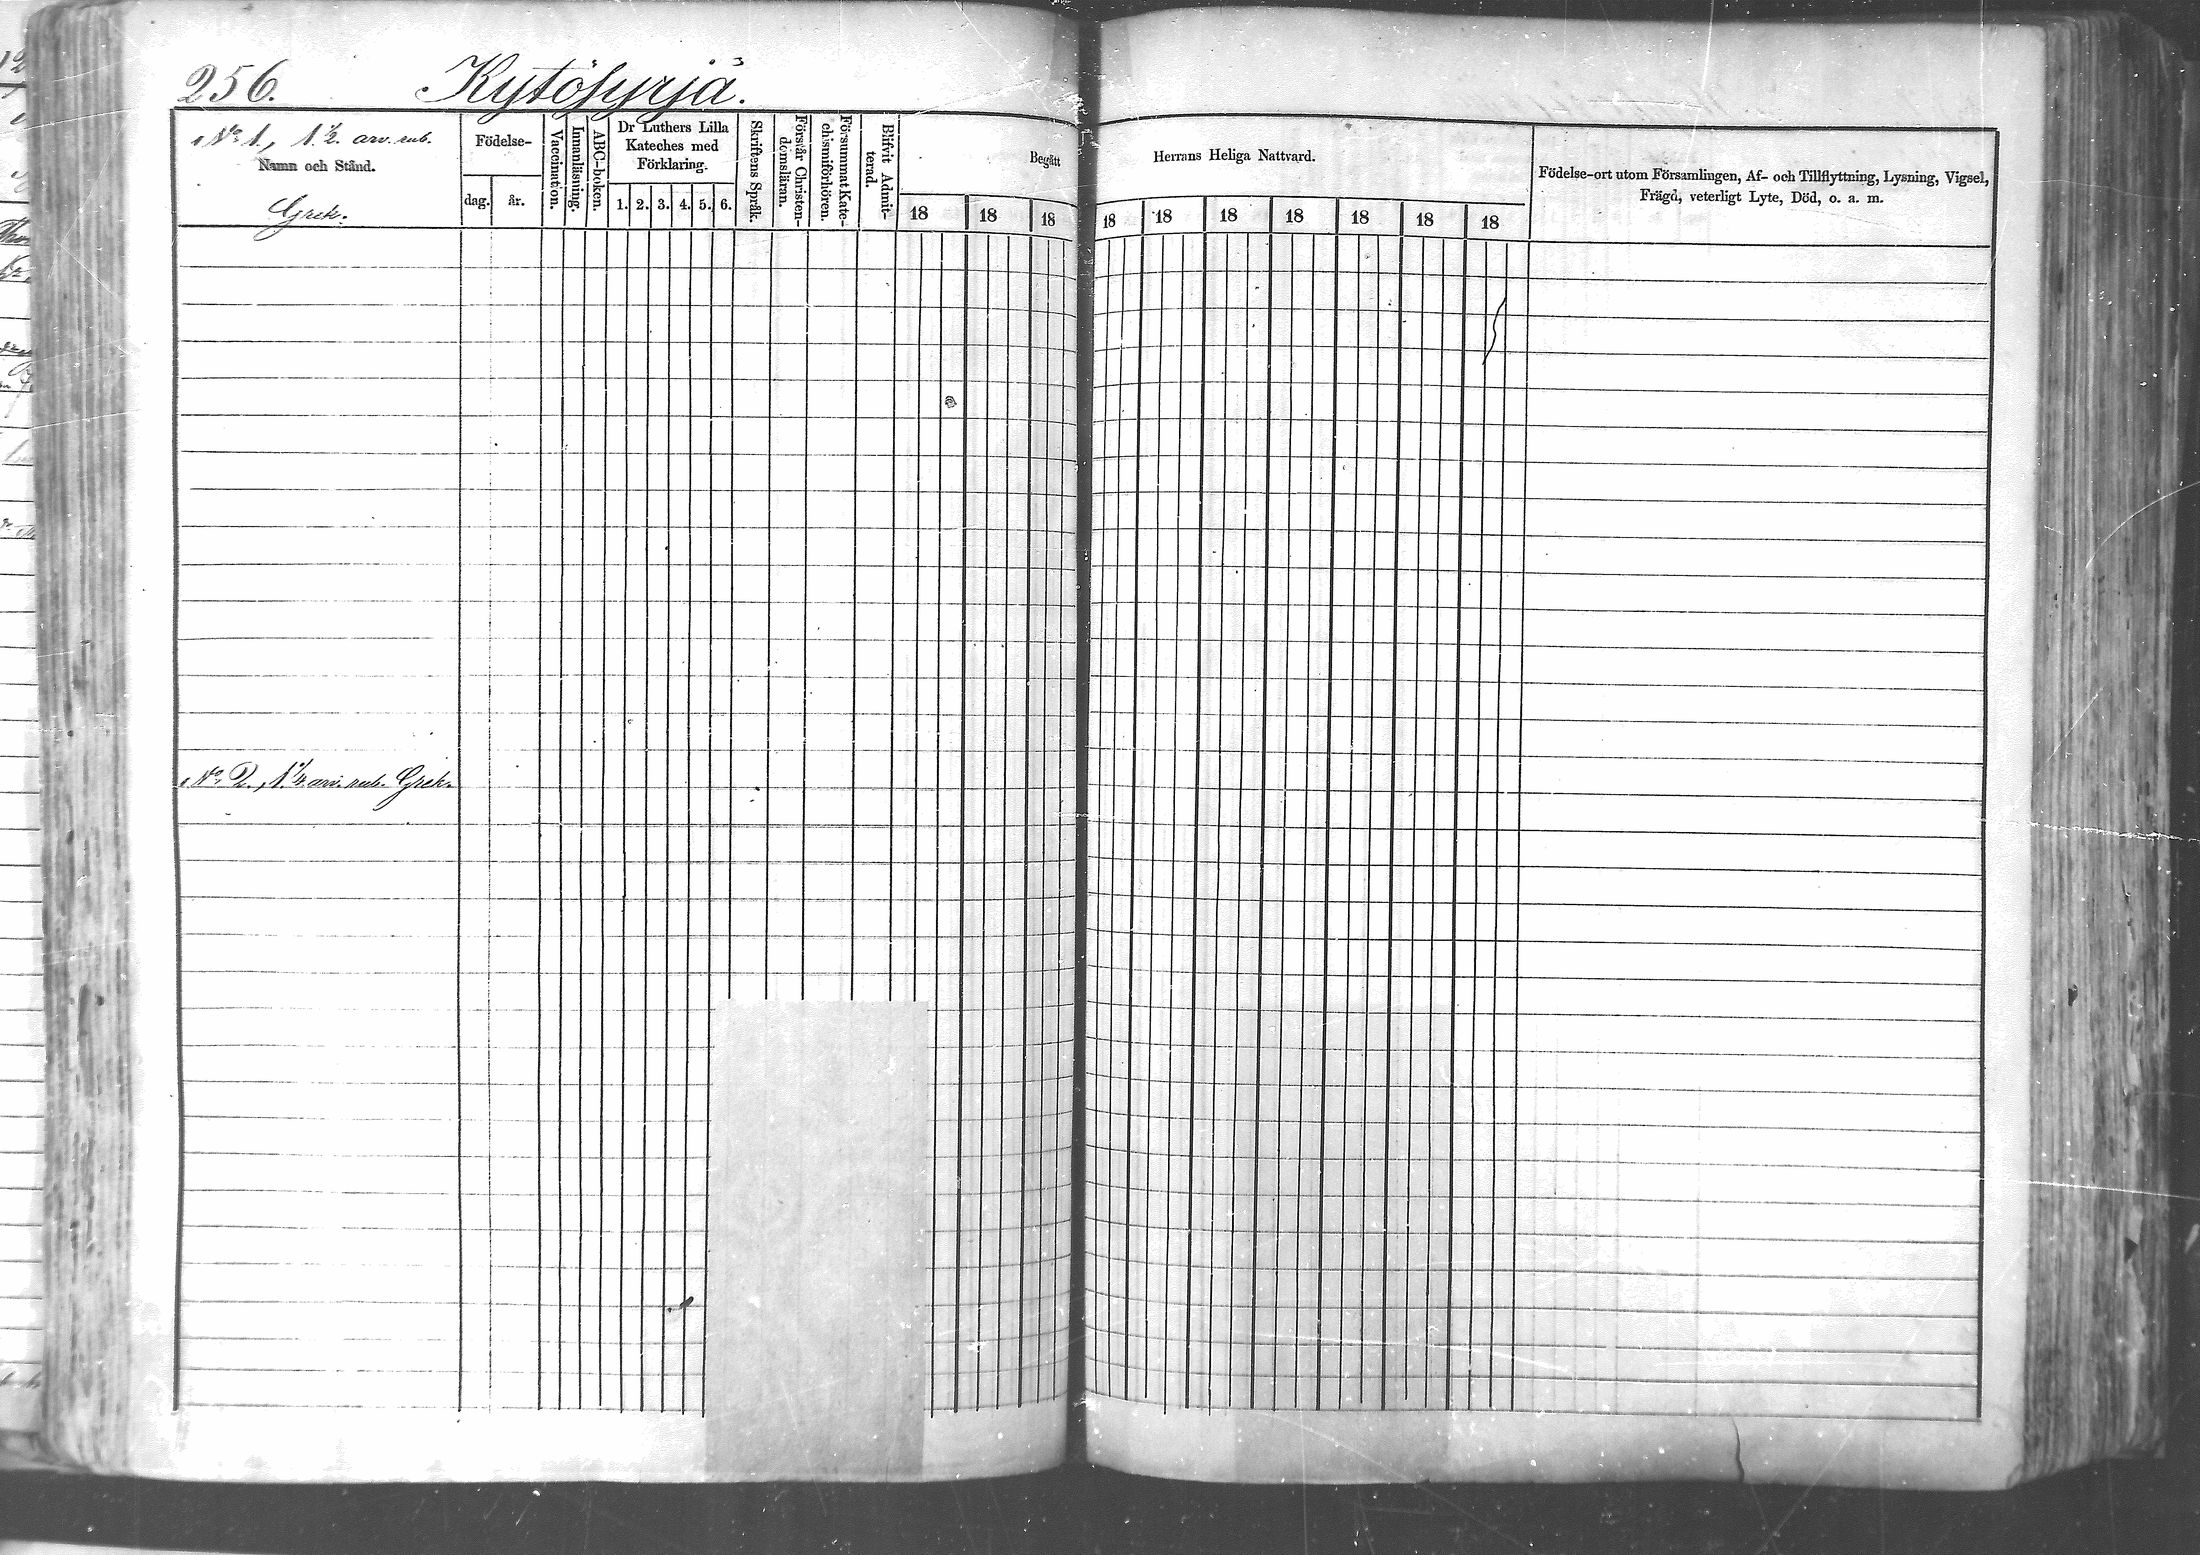 256. Kytösyrjä.
No 1, 1 1/2. arv. rub.
Namn och Stånd.
Grek.
Födelse-
dag. år.
Vaccination.
Innanläsning.
ABC-boken.
Dr Luthers Lilla
Kateches med
Förklaring.
1. 2. 3. 4. 5. 6.
Skriftens Språk.
Förstår Christen-
domsläran.
Försummat Kate-
chismiförhören.
Blifvit Admit-
terad.
Begått Herrans Heliga Nattvard.
18 18 18 18 18 18 18 18 18 18
Födelse-ort utom Församlingen, Af- och Tillflyttning, Lysning, Vigsel,
Frägd, veterligt Lyte, Död, o. a. m.
No 2., 1 1/4 arv. rub. Grek.